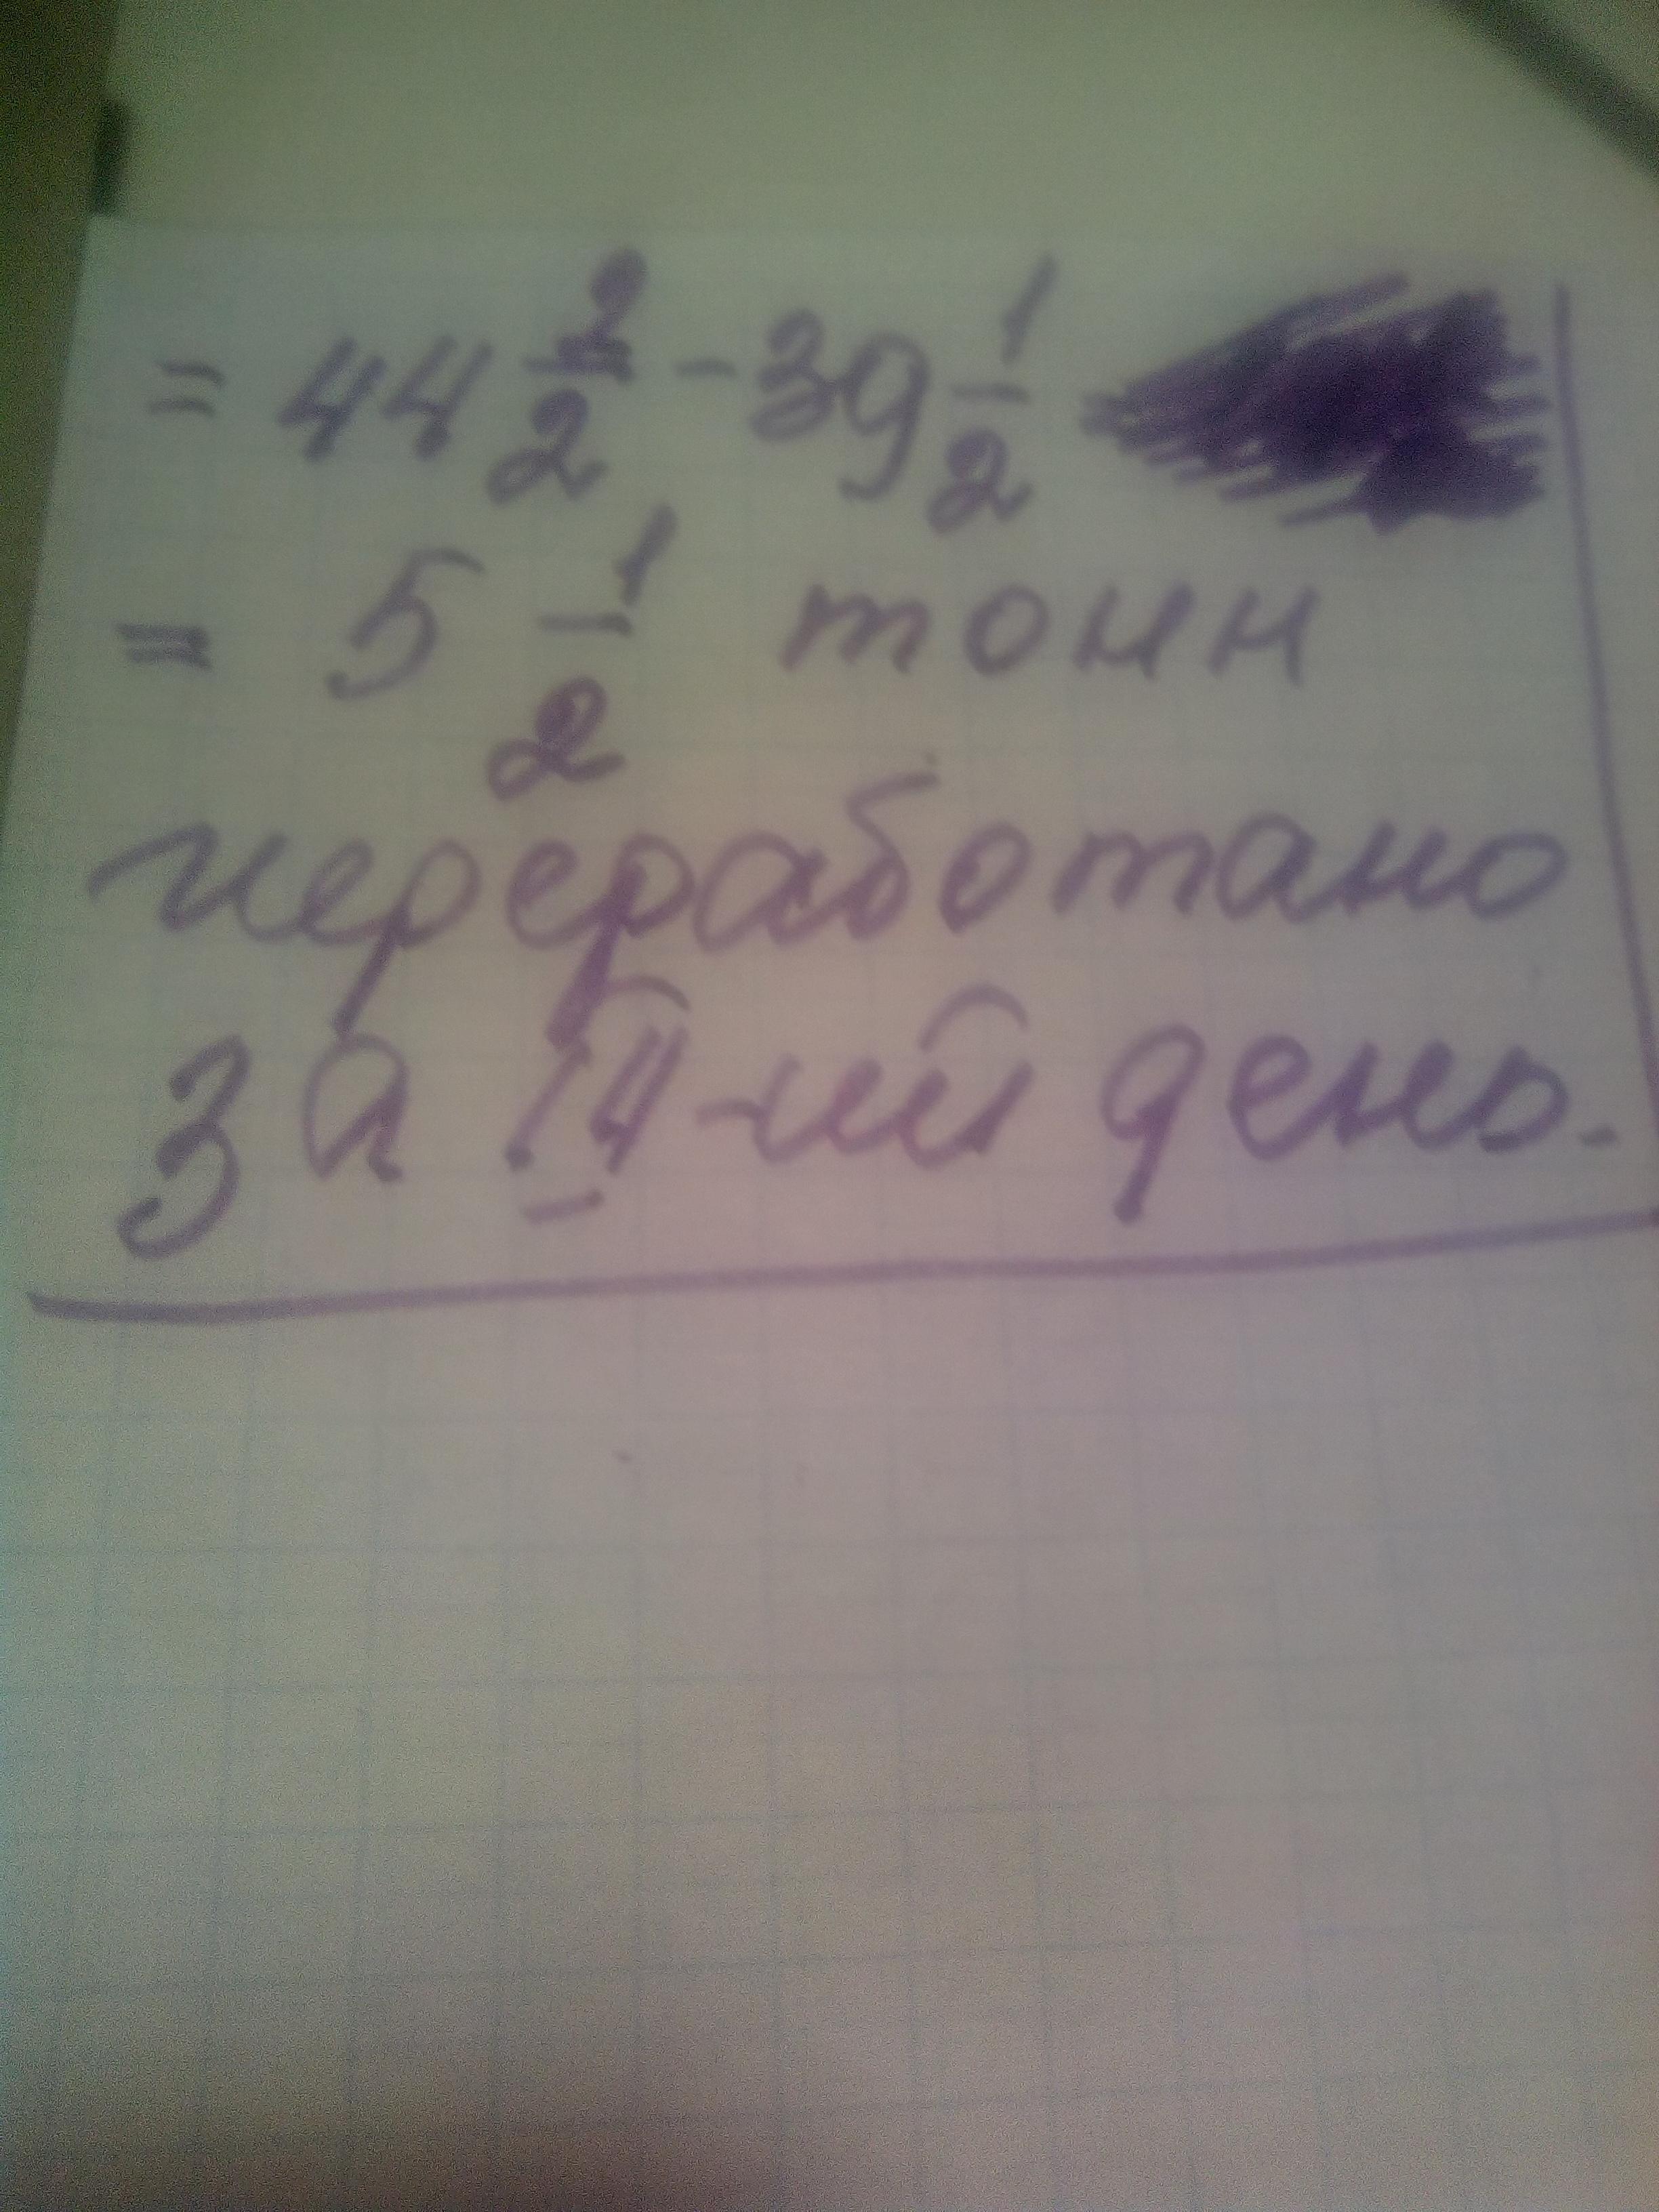 = 44 2/2 - 39 1/2
= 5 1/2 тонн
переработано
за 14-ый день.